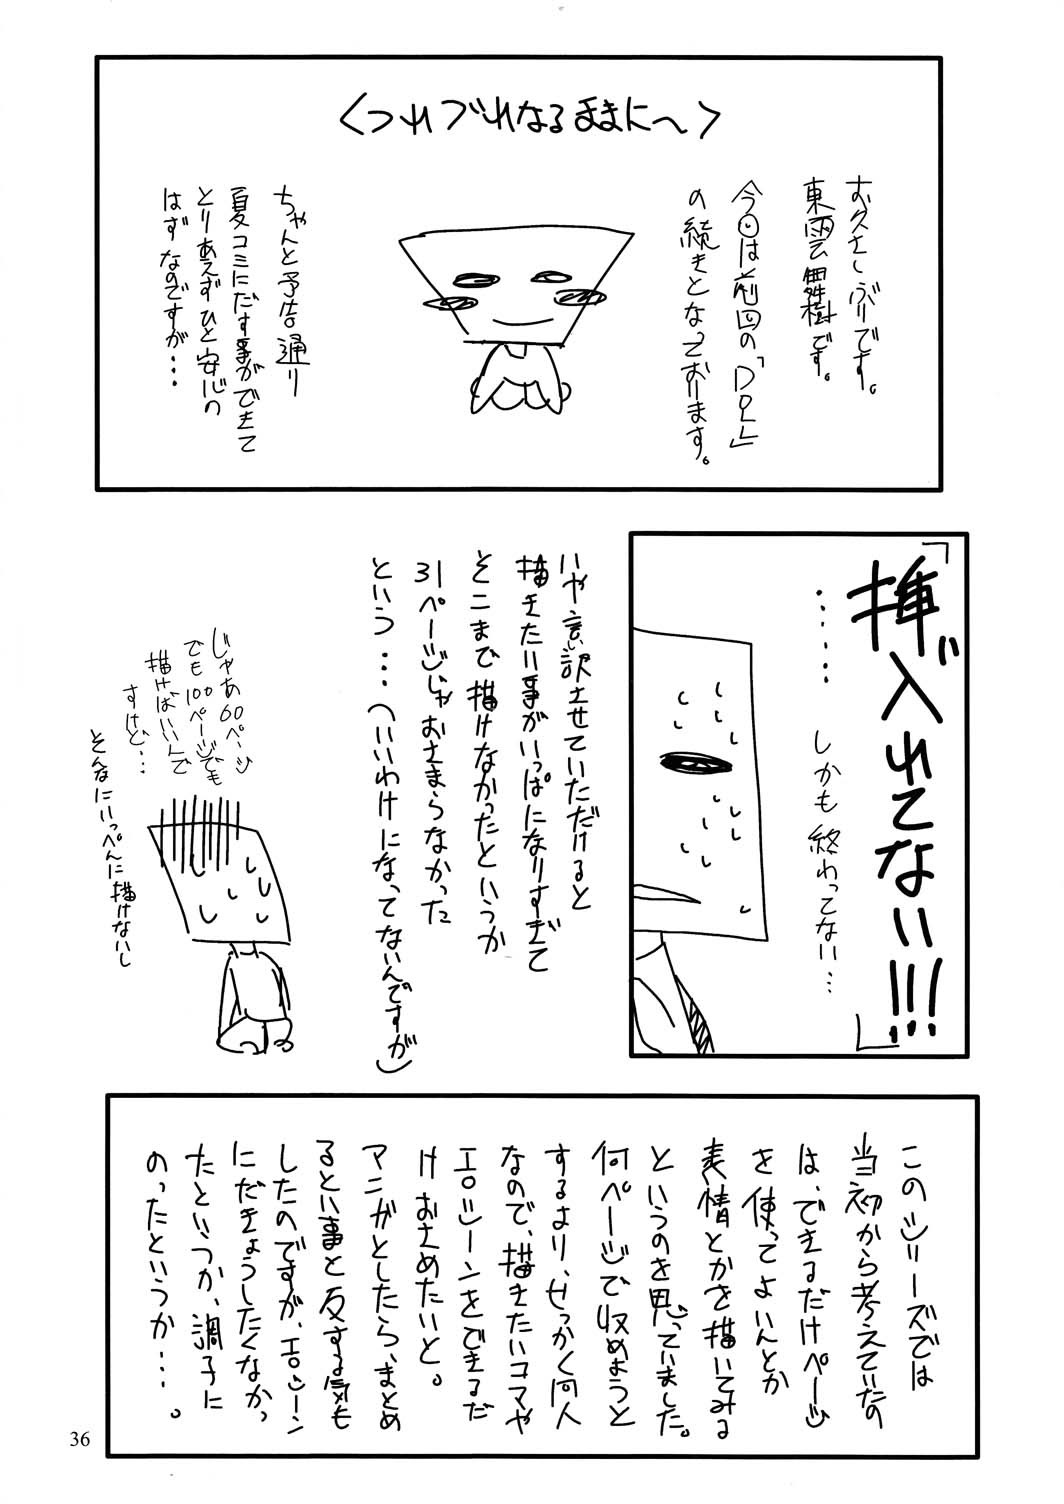 <つれづれなるままに〜>
お久さしぶりです。
東雲龍樹です。
今回は前回の「DOLL」
の続きとなっております。
ちゃんと予告通り
夏コミにだす事ができて
とりあえずひと安心の
はずなのですが…
「挿入れてない!!!」
……しかも終わってない…
いや意訳させていただけると
描きたい事がいっぱになりすぎて
そこまで描けなかったというか
31ページじゃおさまらなかった
という…(いいわけになってないんですが)
じゃあ60ページ
でも100ページでも
描けばいいんで
すけど…
そんなにいっぺんに描けないし
このシリーズでは
当初から考えていたの
は、できるだけページ
を使ってよいんとか
表情とかを描いてみる
というのを思っていました。
何ページで収めようと
するより、せっかく同人
なので、描きたいコマや
エロシーンをできるだ
けおさめたいと。
マンガとしたら、まとめ
るという事と反する気も
したのですが、エロシーン
にだきょうしたくなかっ
たというか、調子に
のったというか…。
36